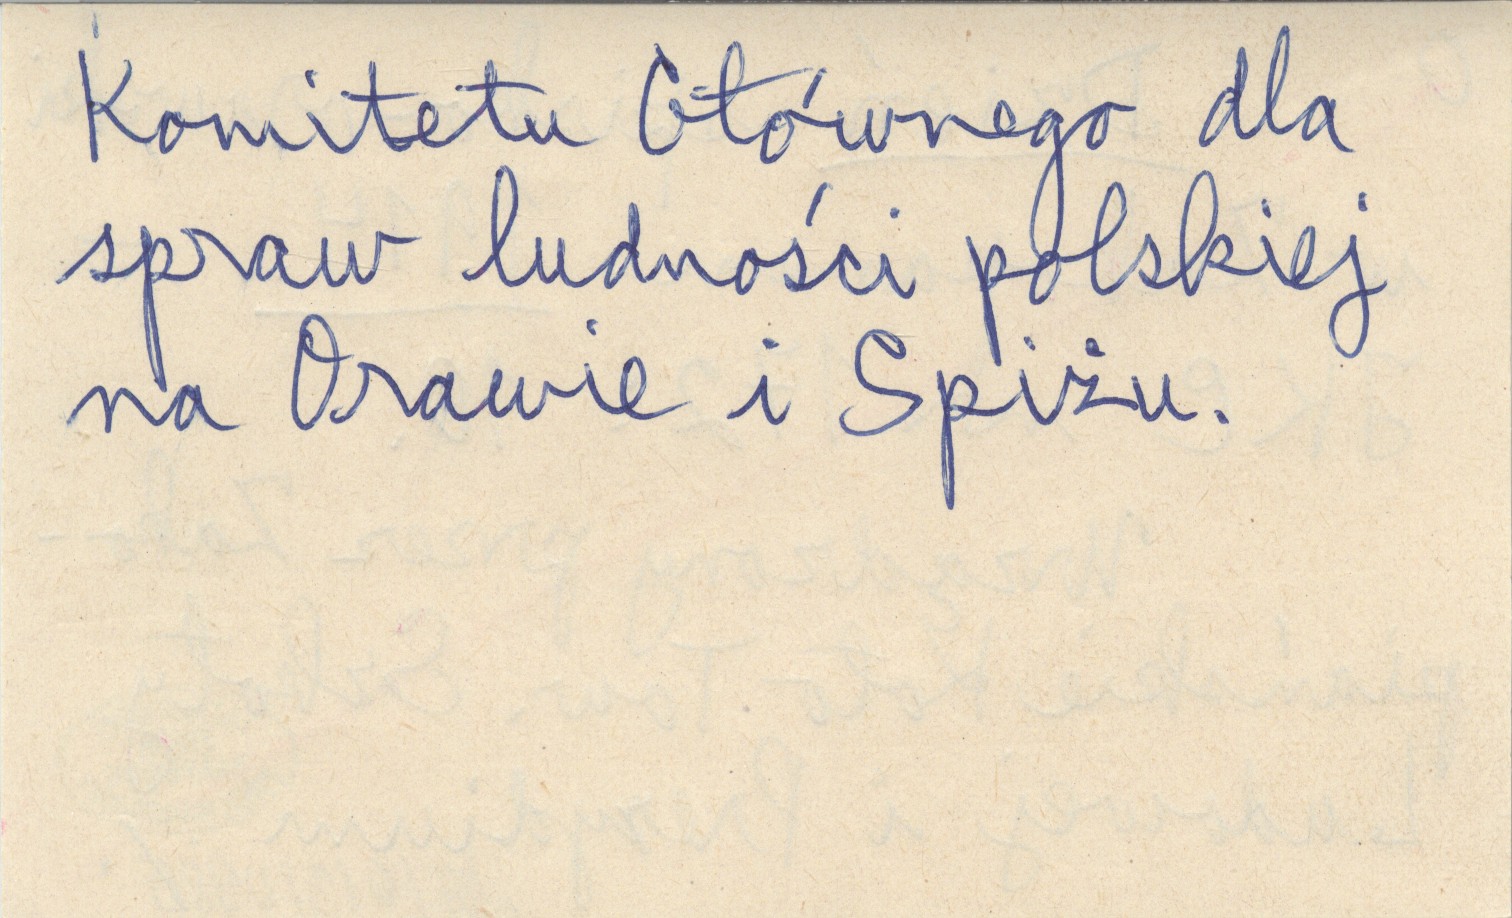 Komitetu Głównego dla
spraw ludności polskiej
na Orawie i Spiżu.